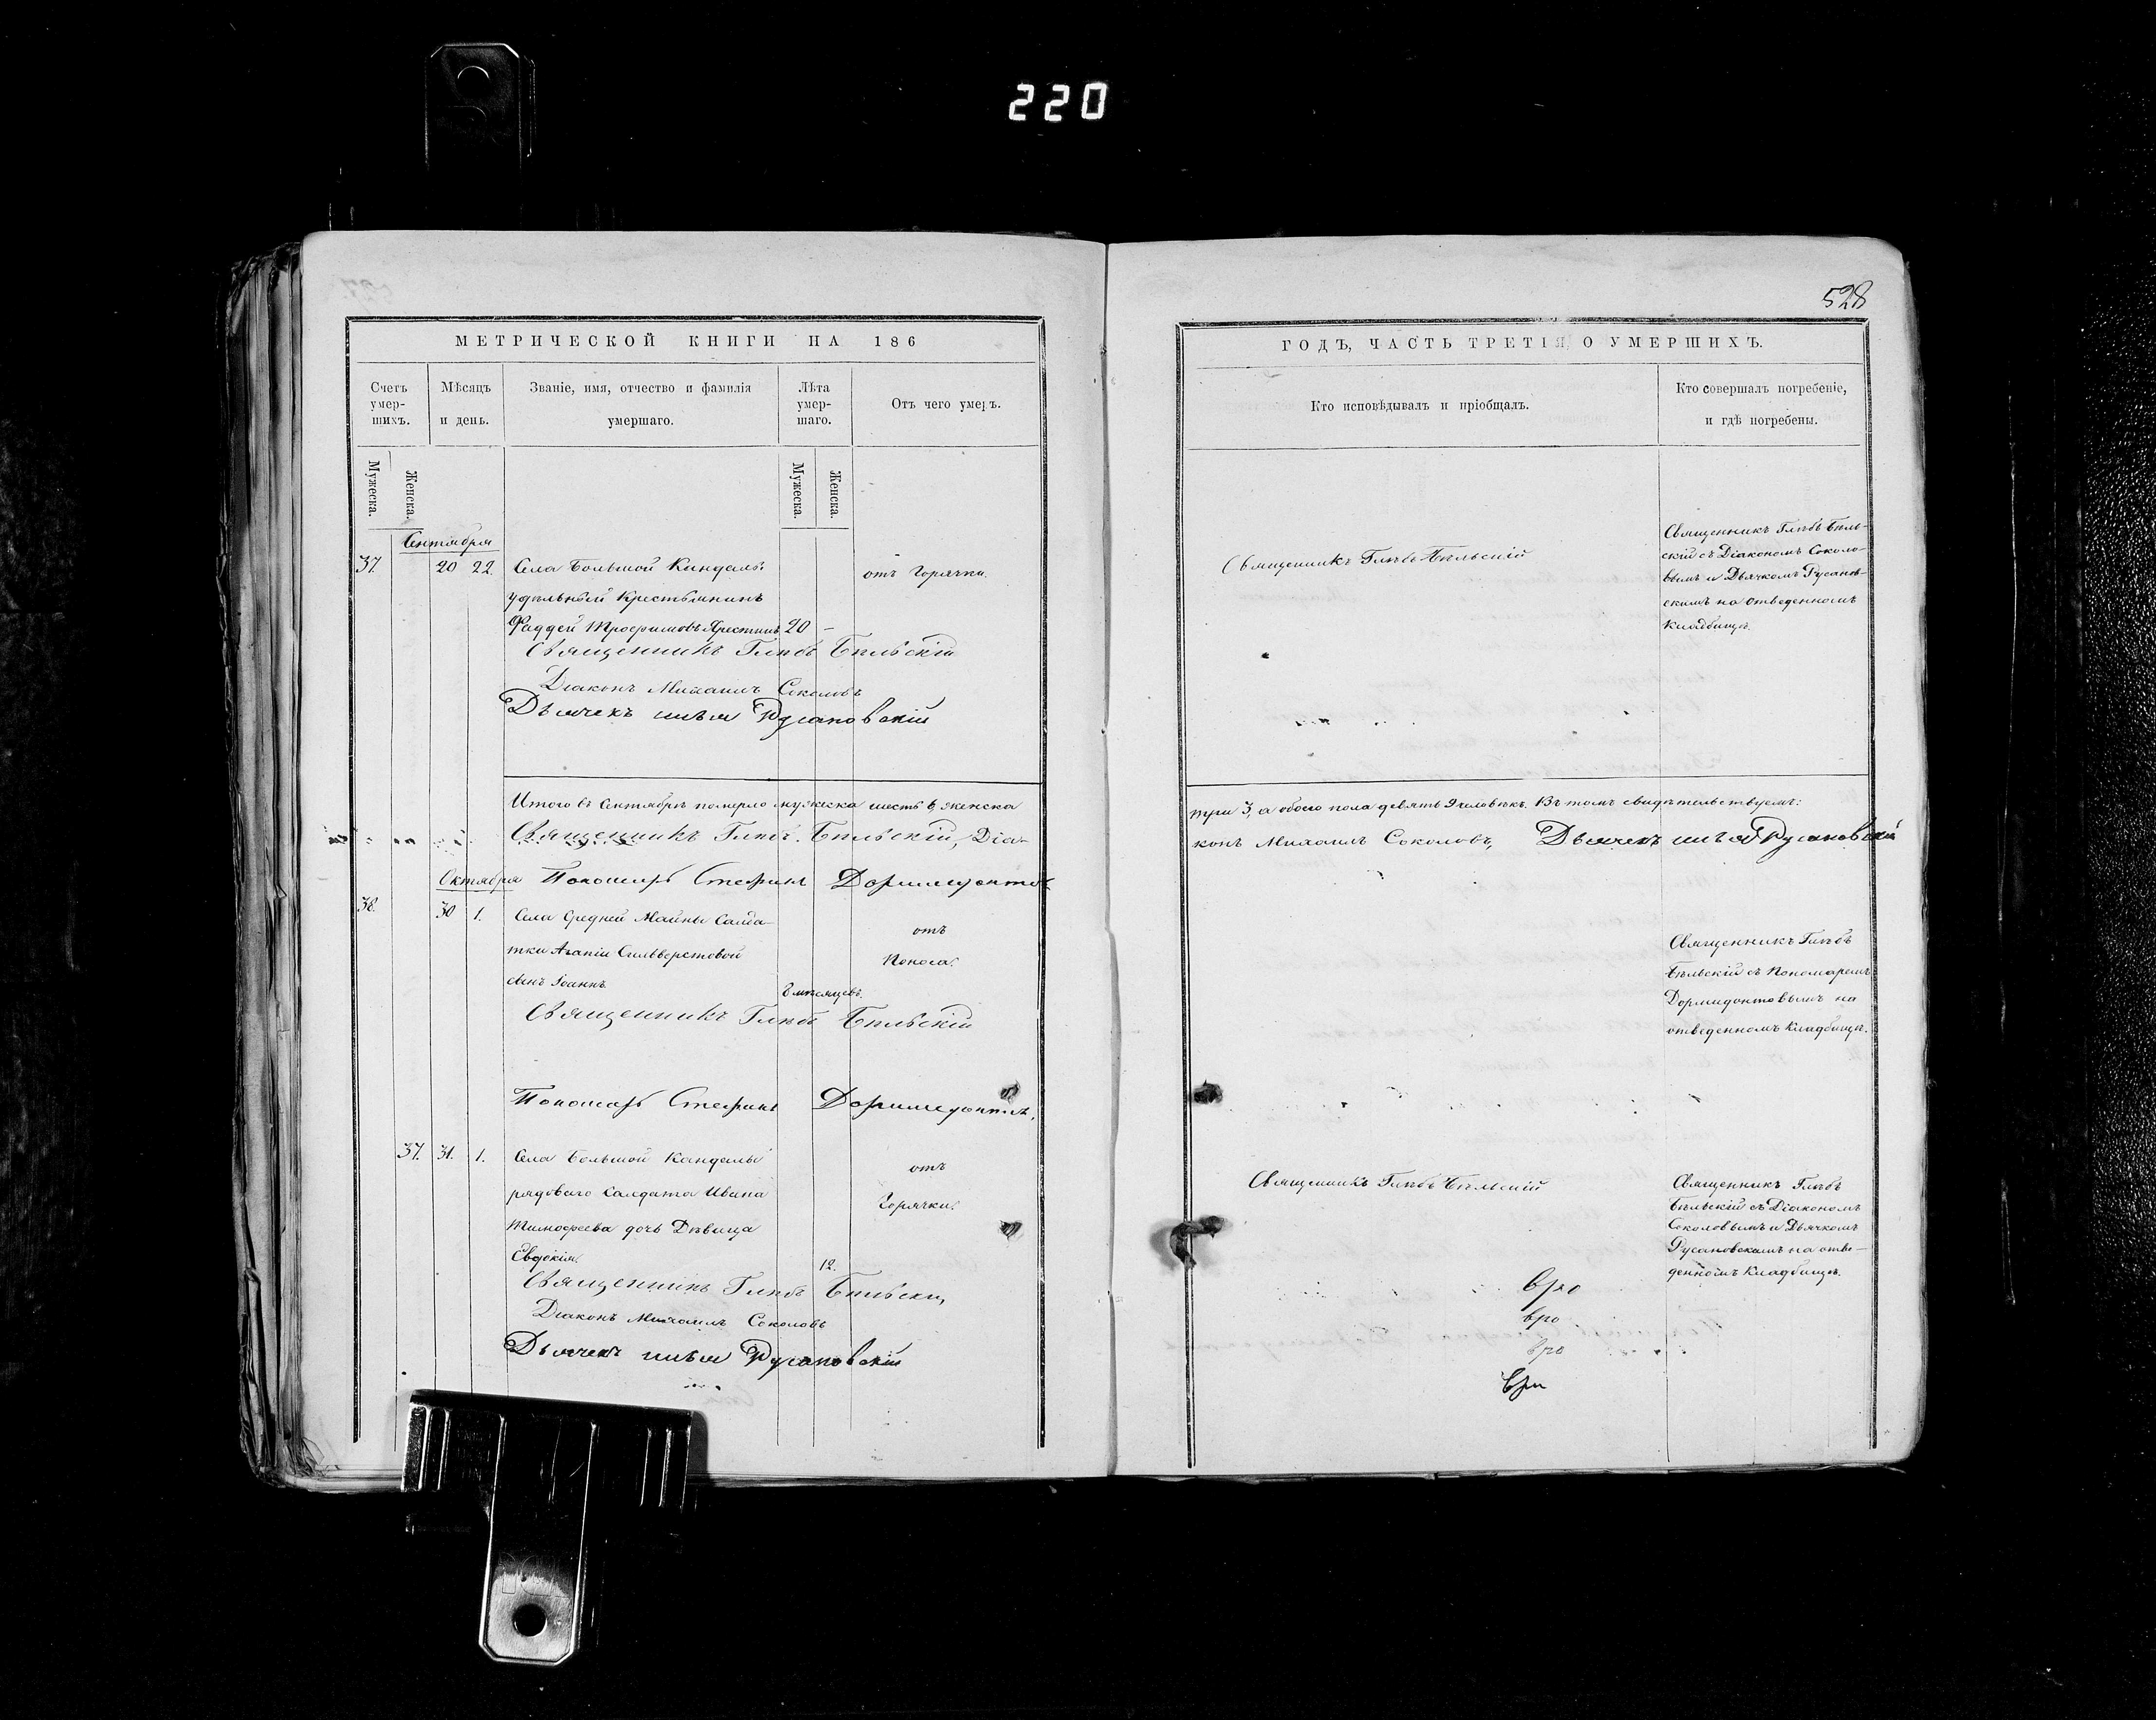 220
528
МЕТРИЧЕСКОЙ КНИГИ НА 186
Счетъ умер-шихъ.
Мѣсяцъ и день.
Званіе, имя, отчество и фамилія умершаго.
Лѣта умер-шаго.
Отъ чего умеръ.
Мужеска.
Женска.
Мужеска.
Женска.
Сентября
37. 20 22. Села Большой Кандалы отъ Горячки.
удѣльный Крестьянинъ
Фаддей Трофимовъ 20 –
Священникъ Глѣбъ Бѣльскій
Діаконъ Михаилъ Соколовъ
Дьячекъ Илья Русановскій
Итого въ Сентябрѣ померло мужеска шесть 6, женска
Священникъ Глѣбъ Бѣльскій, Діа-
Октября Пономарь Стефанъ Доримедонтовъ
38. 30 1. Села Средней Майны Салда-
тки Агапіи Сильверстовой
отъ
Поноса.
сынъ Іоаннъ. мѣсяцевъ.
Священникъ Глѣбъ Бѣльскій
Пономарь Стефанъ Доримедонтовъ.
37. 31. 1. Села Большой Кандалы
отъ
рядоваго Салдата Ивана
Горячки.
Тимофеева дочь Дѣвица
Евдокія. 12.
Священникъ Глѣбъ Бѣльскій
Діаконъ Михаилъ Соколовъ
Дьячекъ Илья Русановскій
ГОДЪ, ЧАСТЬ ТРЕТІЯ, О УМЕРШИХЪ.
Кто исповѣдывалъ и пріобщалъ.
Кто совершалъ погребеніе,
и гдѣ погребены.
Священникъ Глѣбъ Бѣльскій
Священникъ Глѣбъ Бѣль-
скій съ Діакономъ Соколо-
вымъ и Дьячкомъ Русанов-
скимъ на отведенномъ
Кладбищѣ.
три 3, а обоего пола девять 9 человѣкъ. Въ томъ свидѣтельствуемъ:
конъ Михаилъ Соколовъ, Дьячекъ Илья Русановскій
Священникъ Глѣбъ
Бѣльскій съ Пономаремъ
Дормидонтовымъ на
отведенномъ Кладбищѣ.
Священникъ Глѣбъ Бѣльскій
Священникъ Глѣбъ
Бѣльскій съ Діакономъ
Соколовымъ и Дьячкомъ
Русановскимъ на отве-
денномъ Кладбищѣ.